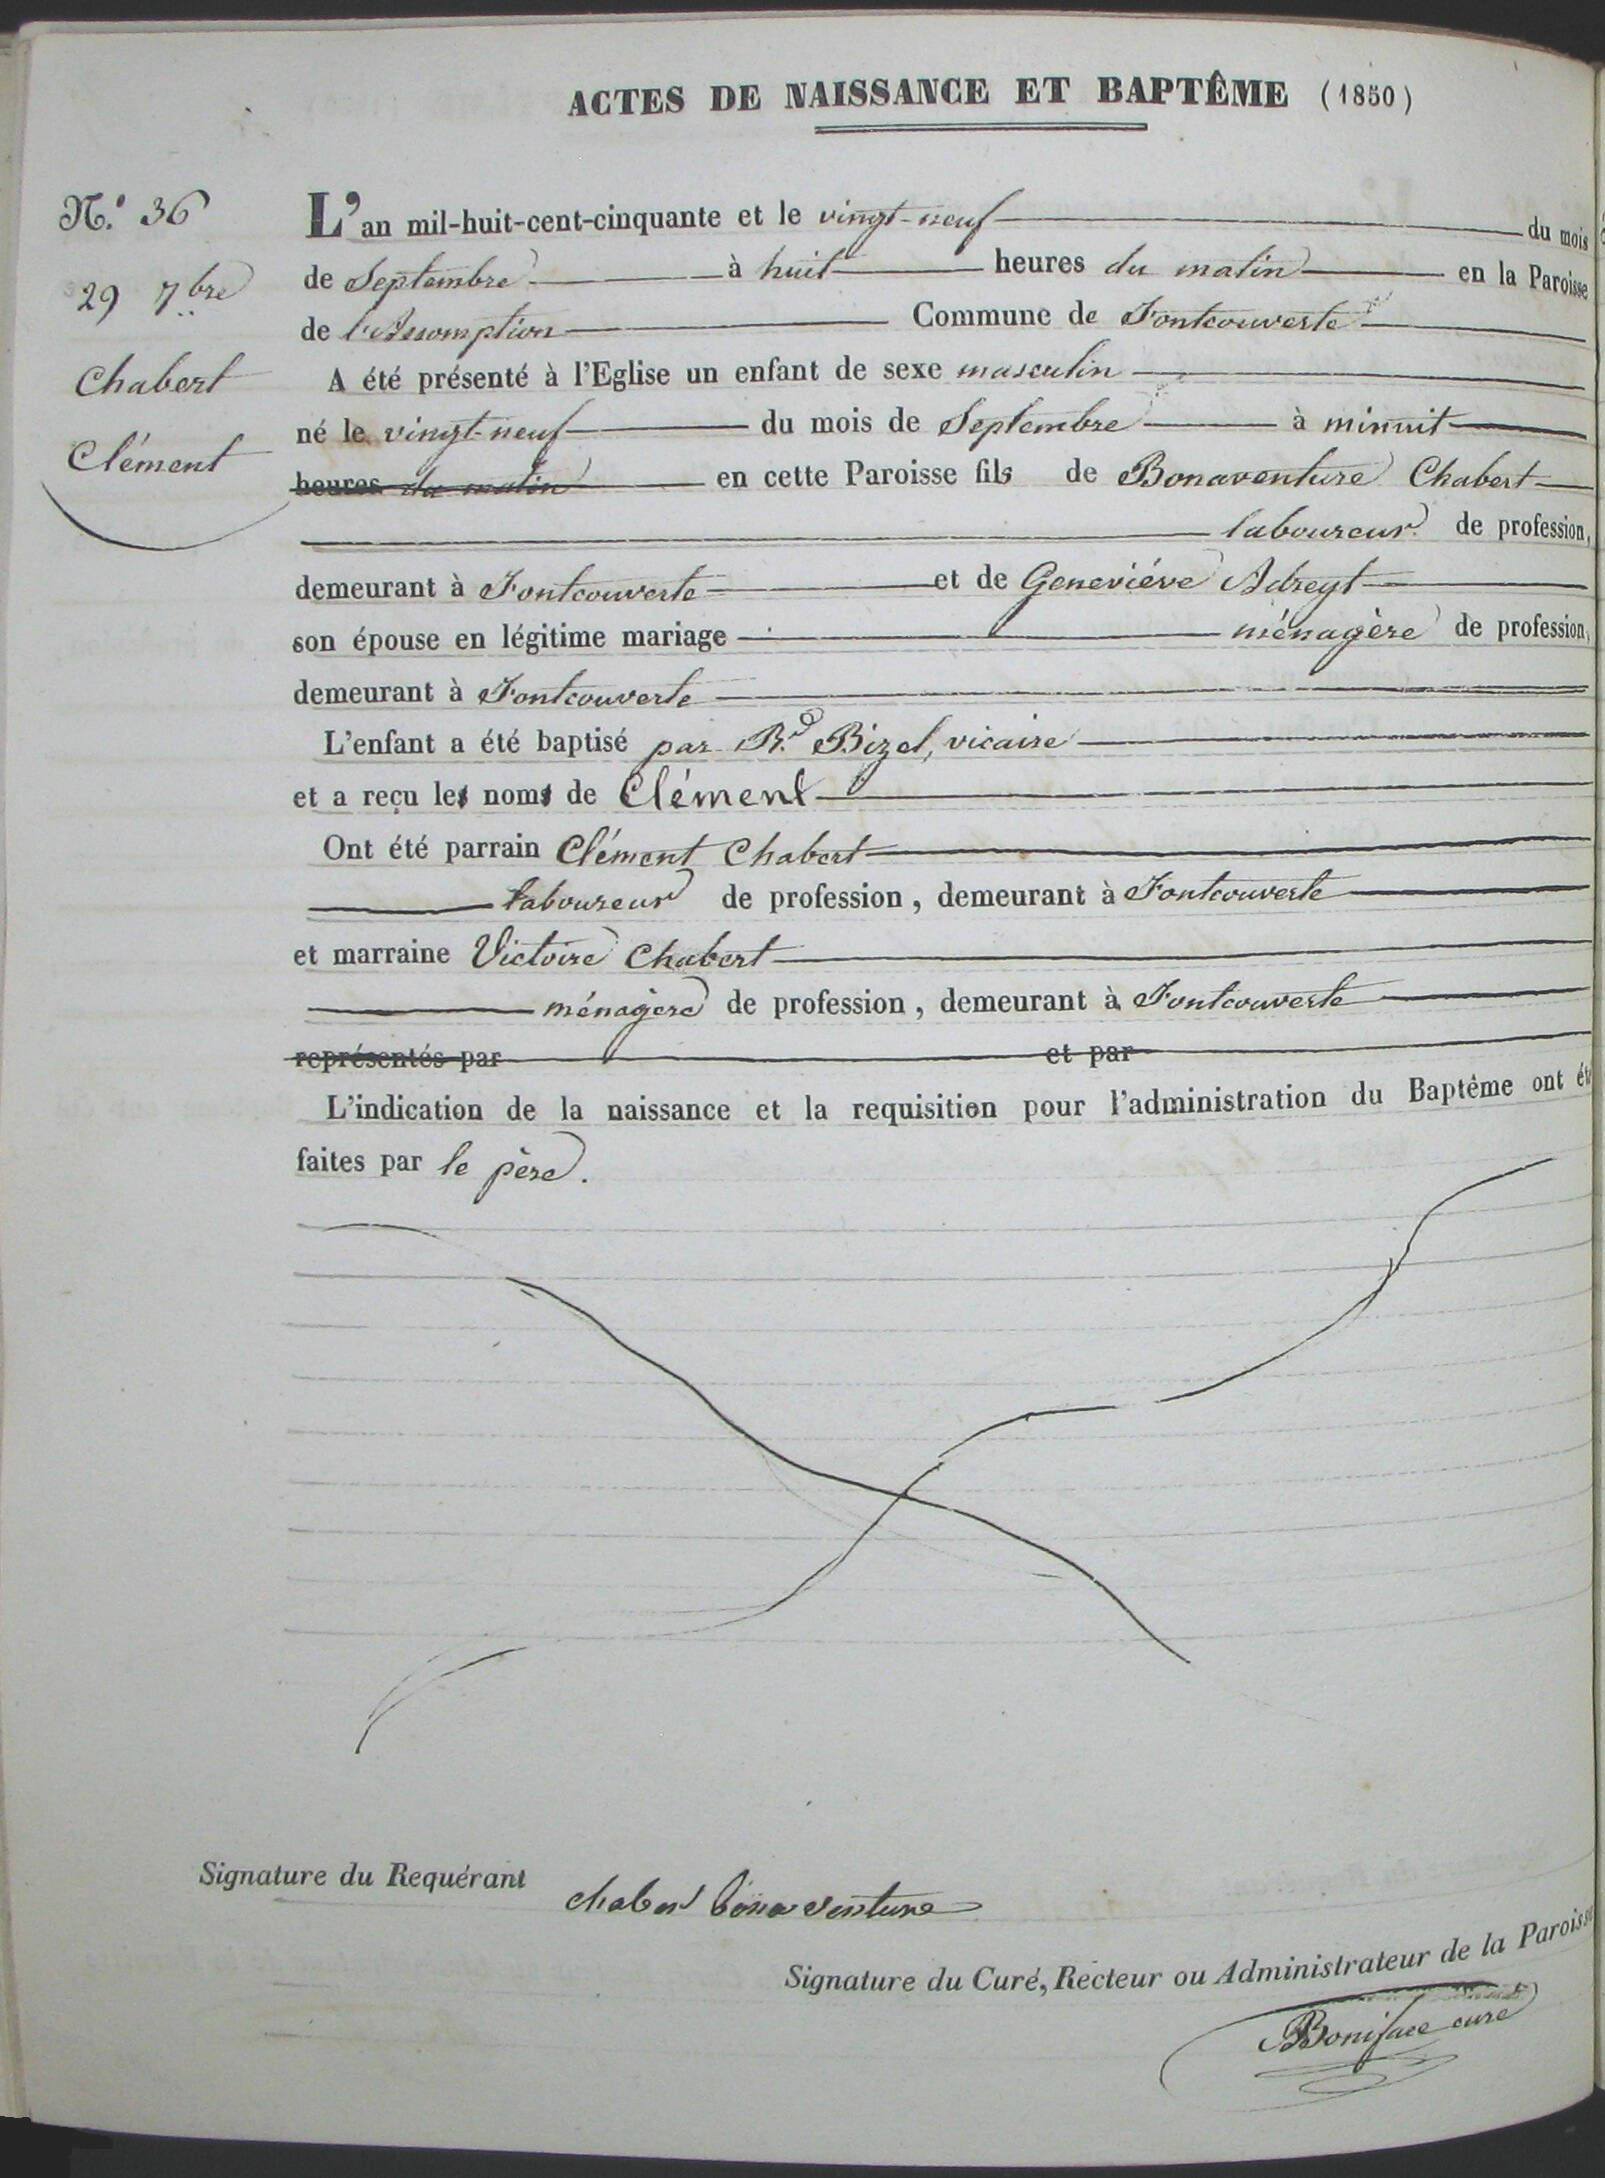 ACTES DE NAISSANCE ET BAPTÊME (1850)
N.º 36
29 7bre
Chabert
Clément
L'an mil-huit-cent-cinquante et le vingt-neuf du mois
de Septembre à huit heures du matin en la Paroisse
de l'Assomption Commune de Fontcouverte
A été présenté à l'Eglise un enfant de sexe masculin
né le vingt-neuf du mois de Septembre à minuit
heures du matin en cette Paroisse fils de Bonaventure Chabert
laboureur de profession,
demeurant à Fontcouverte et de Geneviéve Adreyt
son épouse en légitime mariage ménagère de profession,
demeurant à Fontcouverte
L'enfant a été baptisé par R.d Bizel, vicaire
et a reçu les noms de Clément
Ont été parrain Clément Chabert
laboureur de profession, demeurant à Fontcouverte
et marraine Victoire Chabert
ménagère de profession, demeurant à Fontcouverte
représentés par et par
L'indication de la naissance et la requisition pour l'administration du Baptême ont été
faites par le père.
Signature du Requérant
chabert bonaventure
Signature du Curé, Recteur ou Administrateur de la Paroisse
Boniface curé